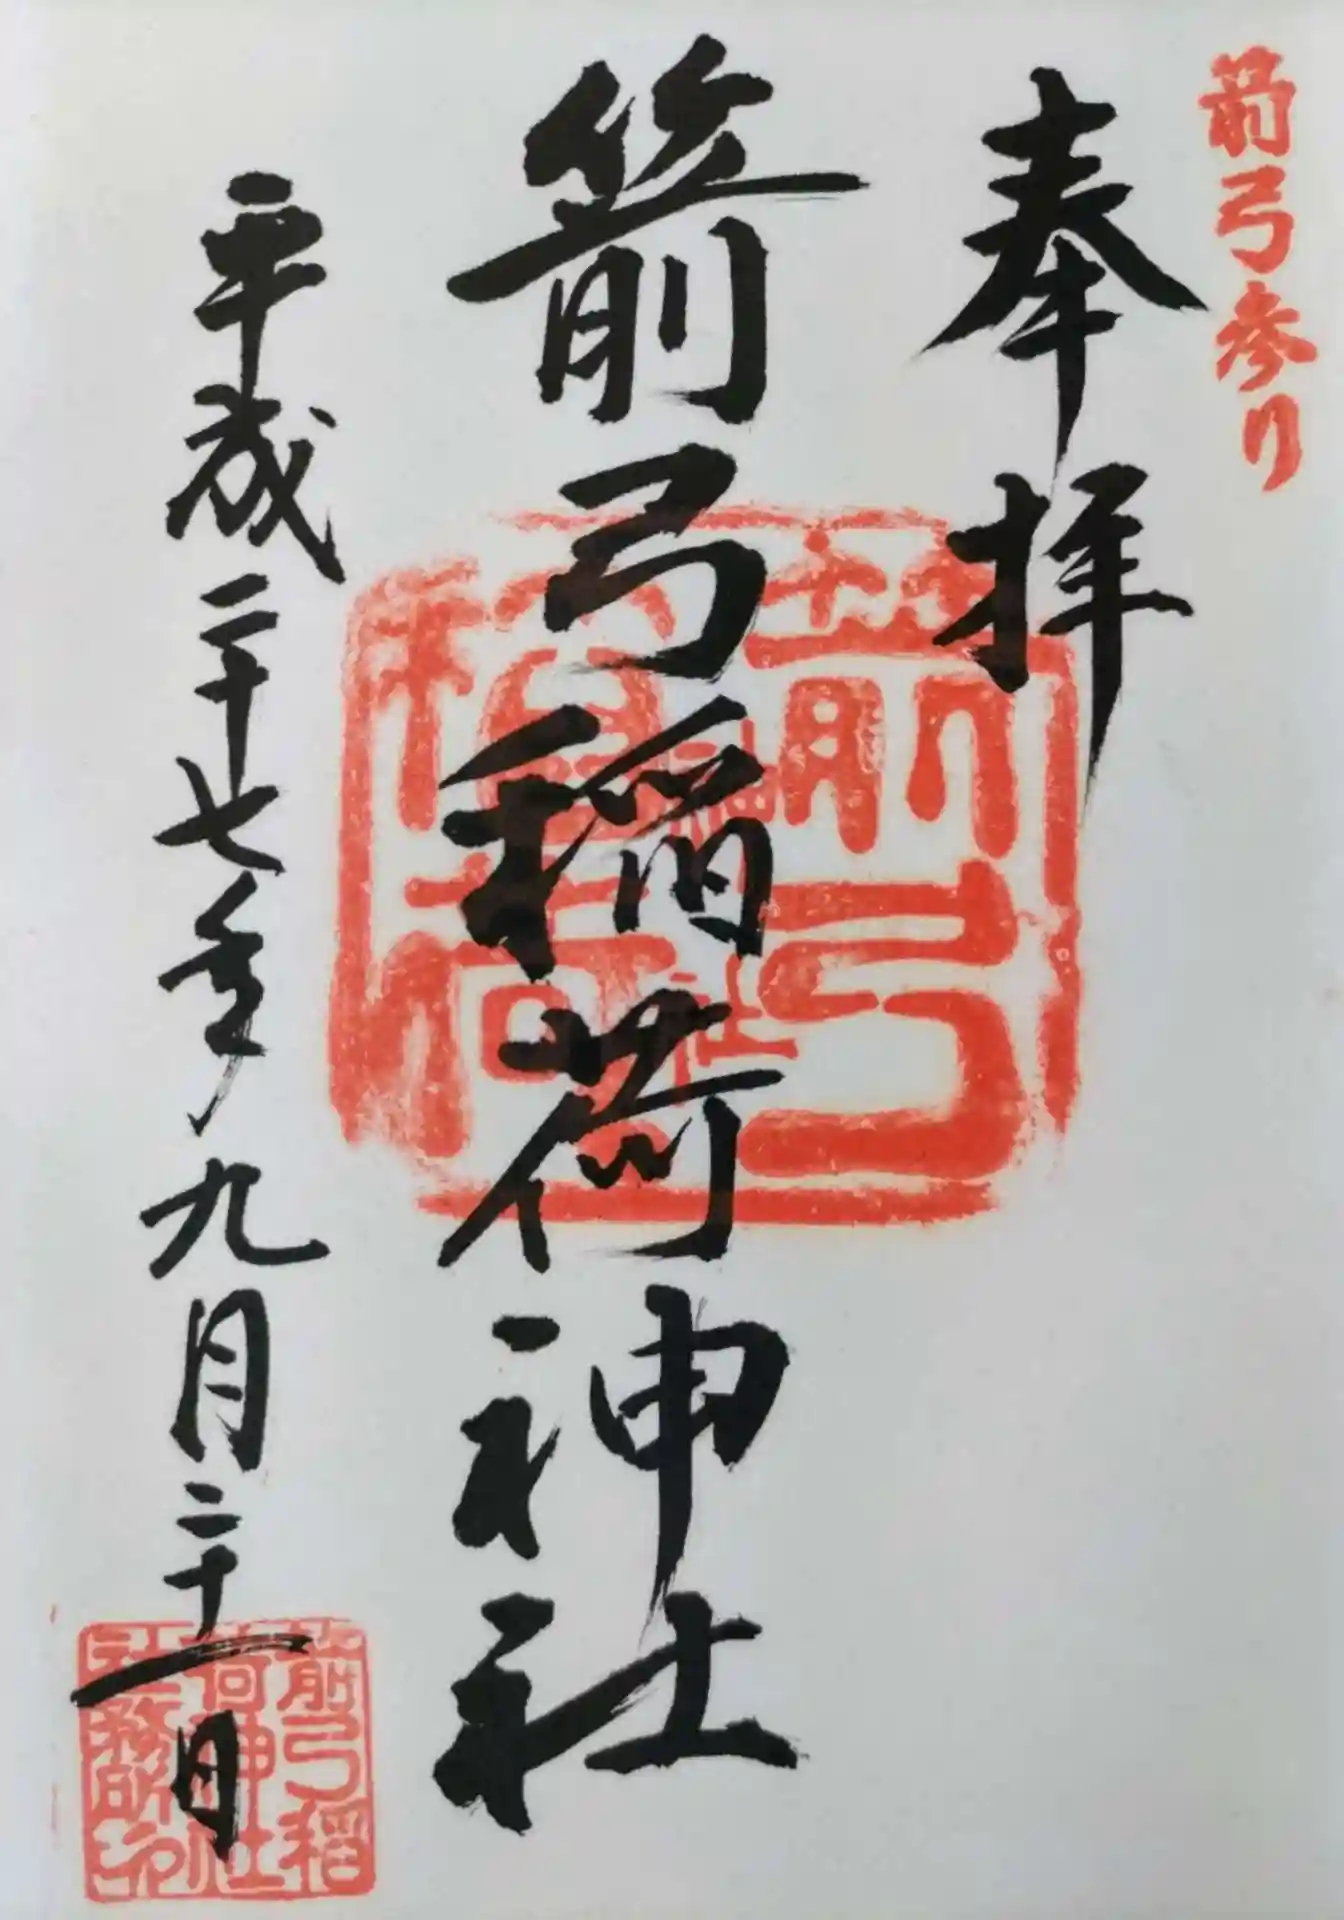 箭弓参り
奉拝
箭弓稲荷神社
平成二十七年九月二十一日
箭弓稲荷神社
箭弓稲荷神社社務所印